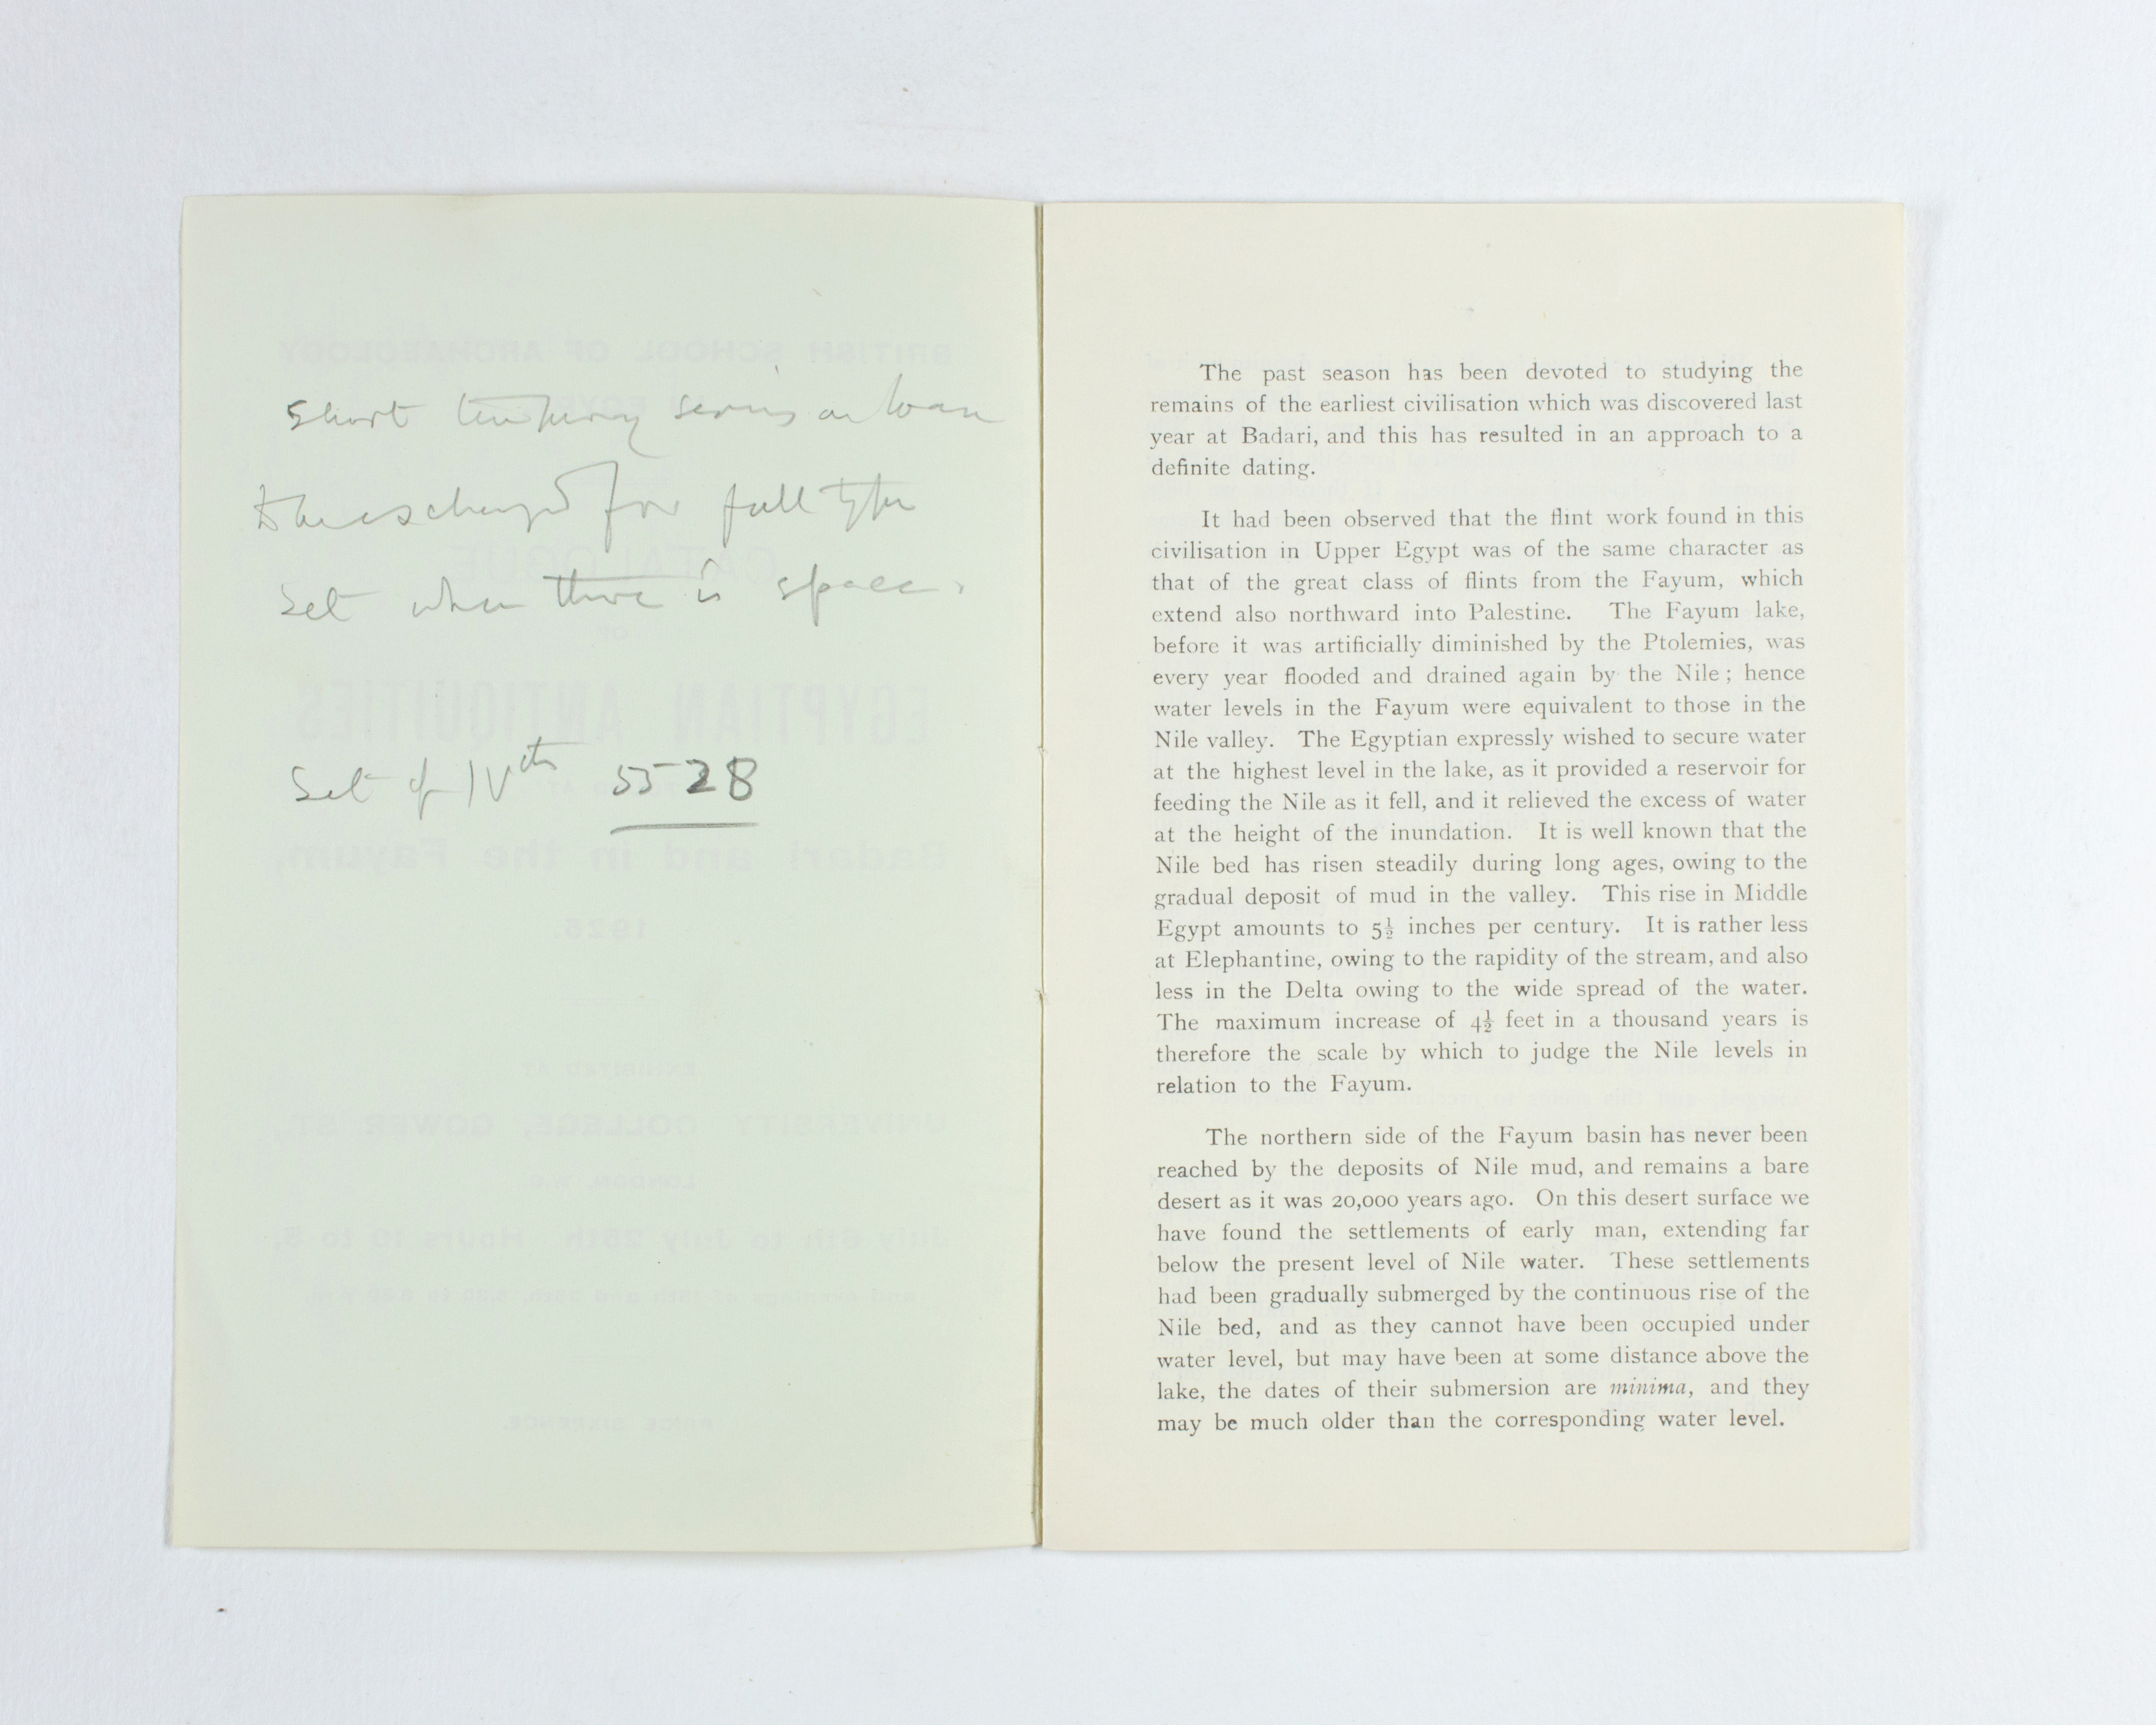 Short temporary series on loan
to be exchanged for full type
set when there is space.
Set of IVth 5528
The past season has been devoted to studying the
remains of the earliest civilisation which was discovered last
year at Badari, and this has resulted in an approach to a
definite dating.
It had been observed that the flint work found in this
civilisation in Upper Egypt was of the same character as
that of the great class of flints from the Fayum, which
extend also northward into Palestine. The Fayum lake,
before it was artificially diminished by the Ptolemies, was
every year flooded and drained again by the Nile; hence
water levels in the Fayum were equivalent to those in the
Nile valley. The Egyptian expressly wished to secure water
at the highest level in the lake, as it provided a reservoir for
feeding the Nile as it fell, and it relieved the excess of water
at the height of the inundation. It is well known that the
Nile bed has risen steadily during long ages, owing to the
gradual deposit of mud in the valley. This rise in Middle
Egypt amounts to 5½ inches per century. It is rather less
at Elephantine, owing to the rapidity of the stream, and also
less in the Delta owing to the wide spread of the water.
The maximum increase of 4½ feet in a thousand years is
therefore the scale by which to judge the Nile levels in
relation to the Fayum.
The northern side of the Fayum basin has never been
reached by the deposits of Nile mud, and remains a bare
desert as it was 20,000 years ago. On this desert surface we
have found the settlements of early man, extending far
below the present level of Nile water. These settlements
had been gradually submerged by the continuous rise of the
Nile bed, and as they cannot have been occupied under
water level, but may have been at some distance above the
lake, the dates of their submersion are minima, and they
may be much older than the corresponding water level.